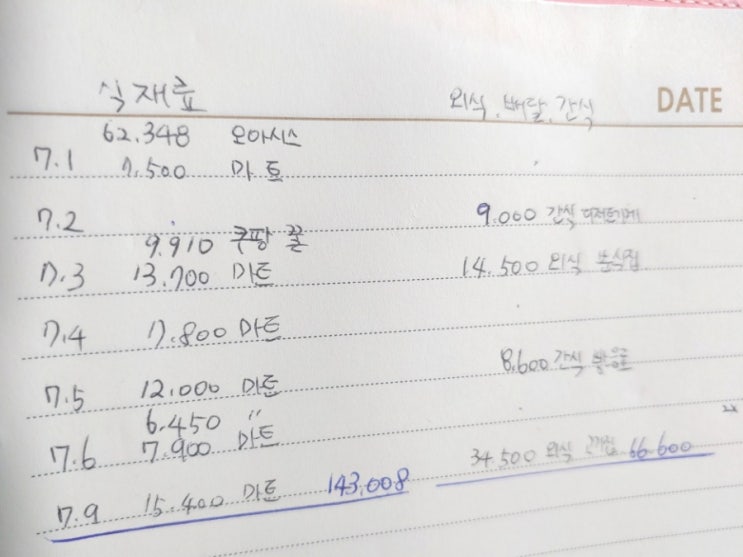 식재료 외식, 배달, 간식 DATE
62.348 오아시스
7.1 7.500 마트
7.2 9.000 간식
9.910 쿠팡 꿀
7.3 13.700 마트 14.500 외식 분식집
7.4 7.800 마트
7.5 12.000 마트 8.600 간식
6.450 〃
7.6 7.900 마트
34.500 외식 66.600
7.9 15.400 마트 143,008